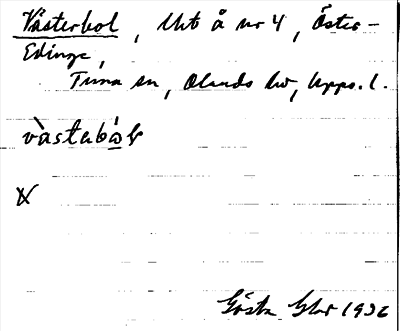 Västerbol, Uht å nr 4, Öster-
Edinge,
Tuna sn, Olands hd, Upps. l.
vàstəbòl
Gösta 1936